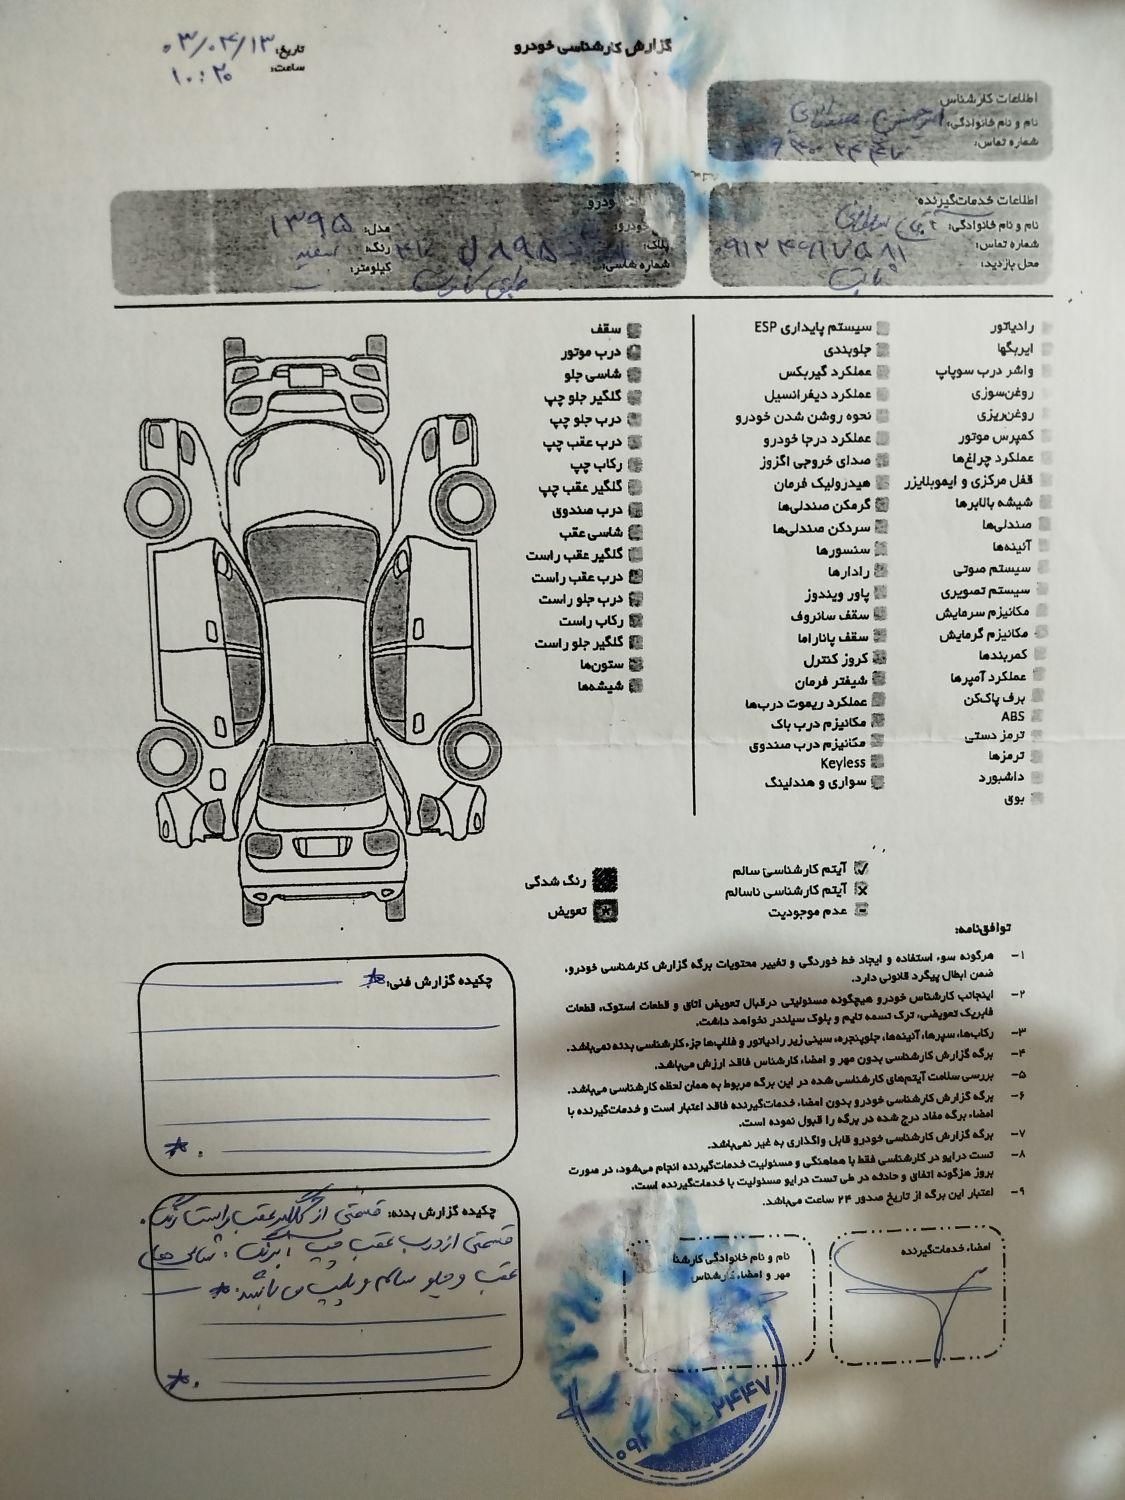 گزارش کارشناسی خودرو
تاریخ: ۰۳/۰۴/۱۳
ساعت: ۱۰:۲۰
اطلاعات کارشناس
نام و نام خانوادگی: امیرحسین
شماره تماس:
اطلاعات خدمات‌گیرنده
نام و نام خانوادگی:
شماره تماس:
محل بازدید:
خودرو
خودرو:
مدل: ۱۳۹۵
پلاک: ل ۸۹۵
رنگ: سفید
شماره شاسی:
کیلومتر:
رادیاتور
ایربگها
واشر درب سوپاپ
روغن‌سوزی
روغن‌ریزی
کمپرس موتور
عملکرد چراغ‌ها
قفل مرکزی و ایموبلایزر
شیشه بالابرها
صندلی‌ها
آئینه‌ها
سیستم صوتی
سیستم تصویری
مکانیزم سرمایش
مکانیزم گرمایش
کمربندها
عملکرد آمپرها
برف پاک‌کن
ABS
ترمز دستی
ترمزها
داشبورد
بوق
سیستم پایداری ESP
جلوبندی
عملکرد گیربکس
عملکرد دیفرانسیل
نحوه روشن شدن خودرو
عملکرد درجا خودرو
صدای خروجی اگزوز
هیدرولیک فرمان
گرمکن صندلی‌ها
سردکن صندلی‌ها
سنسورها
رادارها
پاور ویندوز
سقف سانروف
سقف پاناراما
کروز کنترل
شیفتر فرمان
عملکرد ریموت درب‌ها
مکانیزم درب باک
مکانیزم درب صندوق
Keyless
سواری و هندلینگ
سقف
درب موتور
شاسی جلو
گلگیر جلو چپ
درب جلو چپ
درب عقب چپ
رکاب چپ
گلگیر عقب چپ
درب صندوق
شاسی عقب
گلگیر عقب راست
درب عقب راست
درب جلو راست
رکاب راست
گلگیر جلو راست
ستون‌ها
شیشه‌ها
آیتم کارشناسی سالم
آیتم کارشناسی ناسالم
عدم موجودیت
رنگ شدگی
تعویض
توافق‌نامه:
۱- هرگونه سوء استفاده و ایجاد خط خوردگی و تغییر محتویات برگه گزارش کارشناسی خودرو،
ضمن ابطال پیگرد قانونی دارد.
۲- اینجانب کارشناس خودرو هیچگونه مسئولیتی درقبال تعویض اتاق و قطعات استوک، قطعات
فابریک تعویضی، ترک تسمه تایم و بلوک سیلندر نخواهد داشت.
۳- رکاب‌ها، سپرها، آئینه‌ها، جلوپنجره، سینی زیر رادیاتور و فلاپ‌ها جزء کارشناسی بدنه نمی‌باشد.
۴- برگه گزارش کارشناسی بدون مهر و امضاء کارشناس فاقد ارزش می‌باشد.
۵- بررسی سلامت آیتم‌های کارشناسی شده در این برگه مربوط به همان لحظه کارشناسی می‌باشد.
۶- برگه گزارش کارشناسی خودرو بدون امضاء خدمات‌گیرنده فاقد اعتبار است و خدمات‌گیرنده با
امضاء برگه مفاد درج شده در برگه را قبول نموده است.
۷- برگه گزارش کارشناسی خودرو قابل واگذاری به غیر نمی‌باشد.
۸- تست درایو در کارشناسی فقط با هماهنگی و مسئولیت خدمات‌گیرنده انجام می‌شود، در صورت
بروز هرگونه اتفاق و حادثه در طی تست درایو مسئولیت با خدمات‌گیرنده است.
۹- اعتبار این برگه از تاریخ صدور ۲۴ ساعت می‌باشد.
چکیده گزارش فنی:
چکیده گزارش بدنه: قسمتی از گلگیر عقب راست رنگ.
قسمتی از درب عقب چپ رنگ. شاسی های
عقب و جلو سالم و پلمپ می باشد.
امضاء خدمات‌گیرنده
نام و نام خانوادگی کارشنا
مهر و امضاء کارشناس
۲۴۴۷